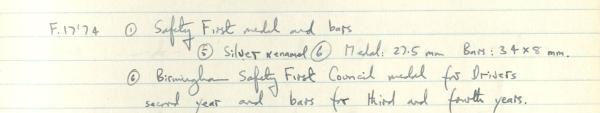 F.17'74 ① Safety First medal and bars
⑤ Silver & enamel ⑥ Medal: 27.5 mm Bars: 34×8 mm.
⑥ Birmingham Safety First Council medal for Drivers
second year and bars for third and fourth years.